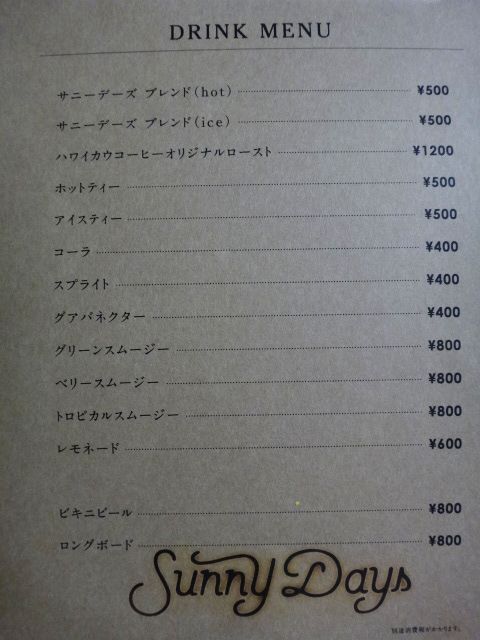 DRINK MENU
サニーデーズ ブレンド(hot) ¥500
サニーデーズ ブレンド(ice) ¥500
ハワイカウコーヒーオリジナルロースト ¥1200
ホットティー ¥500
アイスティー ¥500
コーラ ¥400
スプライト ¥400
グアバネクター ¥400
グリーンスムージー ¥800
ベリースムージー ¥800
トロピカルスムージー ¥800
レモネード ¥600
ビキニビール ¥800
ロングボード ¥800
Sunny Days
別途消費税がかかります。